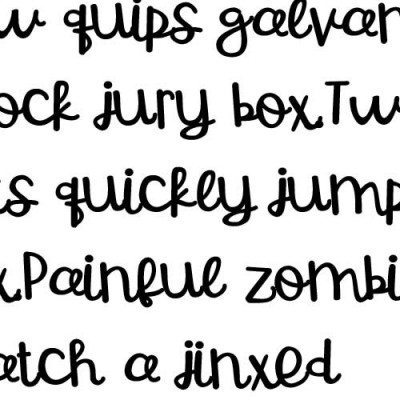 w quips galvan
ock jury box.Tw
s quickly jump
x.Painful zombi
atch a jinxed